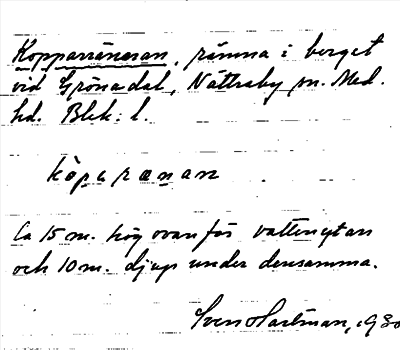 Kopparrännan, rämna i berget
vid Grönadal, Nättraby sn. Med.
hd. Blek: l.
köparænan
Ca 15 m. hög ovanför vattenytan
och 10 m. djup under densamma.
Sven Hartman, 1930